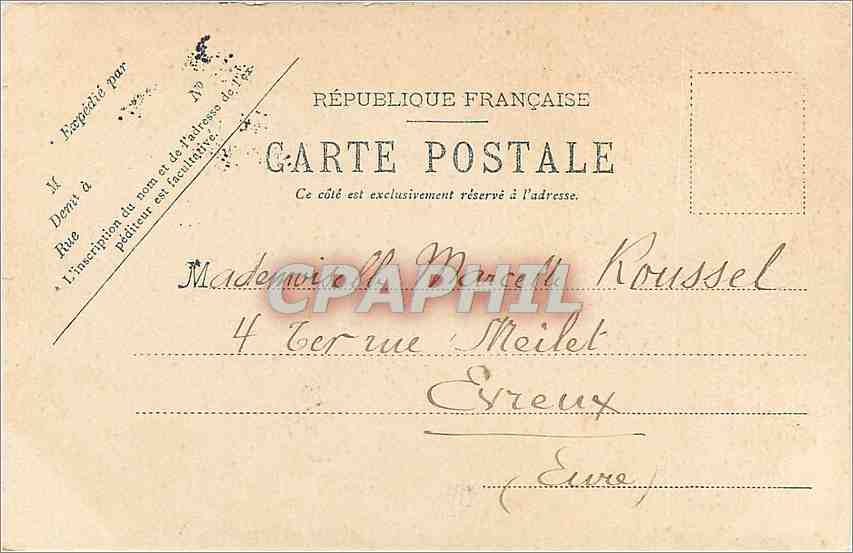 * Expédié par
M
Demt à
Rue Nº
* L'inscription du nom et de l'adresse de l'ex-
péditeur est facultative.
RÉPUBLIQUE FRANÇAISE
CARTE POSTALE
Ce côté est exclusivement réservé à l'adresse.
Mademoiselle Marcelle Roussel
CPAPHIL
4 ter rue Meilet
Evreux
(Eure)